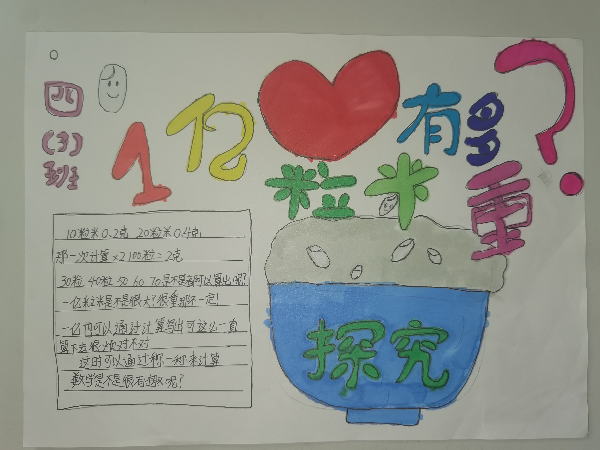 四(3)班
1亿
粒米
有多重?
10粒米0.2克 20粒米0.4克
那一次计算×2 100粒=2克
30粒 40粒 50 60 70是不是都可以算出呢?
一亿粒米是不是很大?很重那不一定!
一亿也可以通过计算写出可这么一直
算下去很 对不对
这时可以通过称一称来计算
数学是不是很有趣呢?
探究